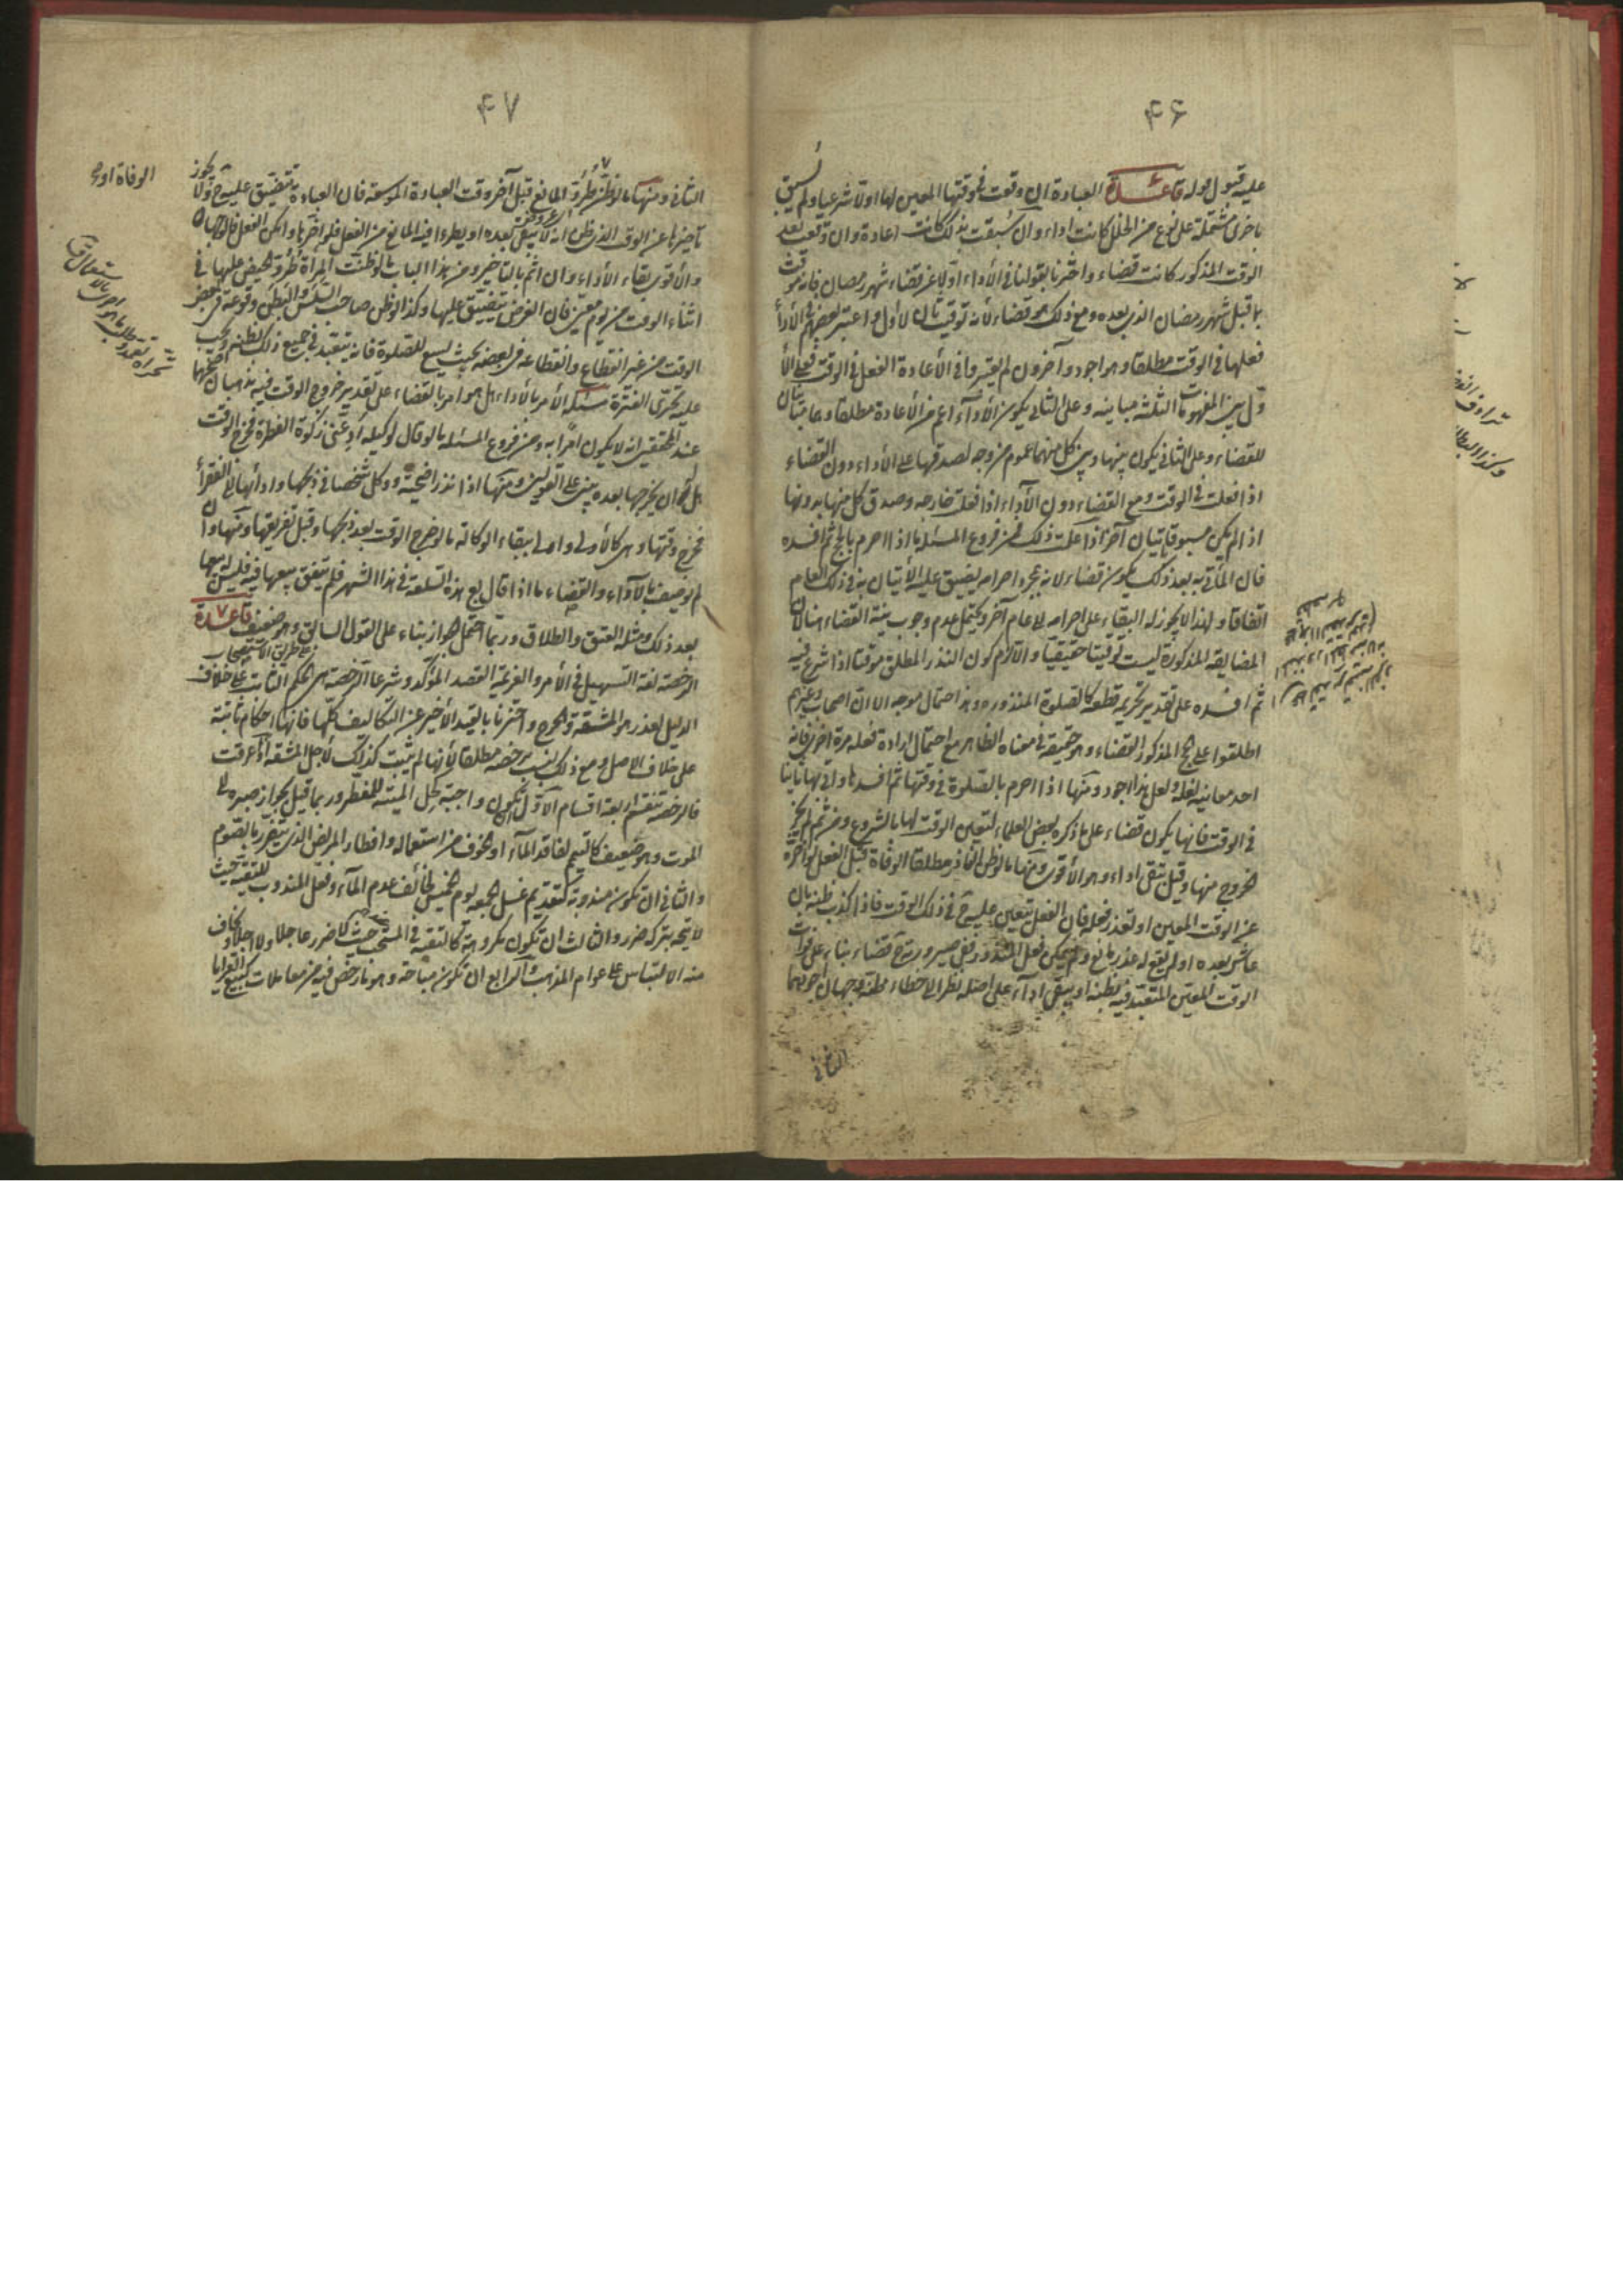 ۴۶
عليه قبول قوله قاعدة العبادة ان وقعت في وقتها المعين لها اولا شرعيا ولم يسبق
باخرى مشتملة على نوع من الخلل كانت اداء وان سبقت بذلك كانت اعادة وان وقعت بعد
الوقت المذكور كانت قضاء واحترزنا بقولنا في الأداء اولا عن قضاء شهر رمضان فانه موقت
بما قبل شهر رمضان الذي بعده ومع ذلك هو قضاء لأنه توقيت ثان لا اول واعتبر بعضهم في الأداء
فعلها في الوقت مطلقا وهو اجود وآخرون لم يعتبروا في الأعادة الفعل في الوقت فعلى الأ
ول بين المفهومات الثلثة مباينه وعلى الثاني يكون الأداء اعم من الأعادة مطلقا وهما مباينان
للقضاء وعلى الثاني يكون بينها وبين كل منهما عموم من وجه لصدقها على الأداء دون القضاء
اذا فعلت في الوقت ومع القضاء دون الأداء اذا فعلت خارجه وصدق كل منهما بدونها
اذا لم يكن مسبوقا باتيان آخر اذا علمت ذلك فمن فروع المسئله ما اذا احرم بالحج ثم افسده
فان المأتي به بعد ذلك يكون قضاء لانه بمجرد احرامه يضيق عليه الاتيان به في ذلك العام
اتفاقا ولهذا لا يجوز له البقاء على احرامه لاعام آخر ويحتمل عدم وجوب نية القضاء هنا لان
المضايقه المذكورة ليست توقيتا حقيقيا والا لزم كون النذر المطلق موقتا اذا شرع فيه
ثم افسده على تقدير تحريم قطعه كالصلوة المنذوره وهذا احتمال موجه الا ان اصحاب وغيرهم
اطلقوا على الحج المذكور القضاء وهو حقيقة في معناه الظاهر مع احتمال ارادة فعله مرة اخرى فانه
احد معانيه لغة ولعل هذا اجود ومنها اذا احرم بالصلوة في وقتها ثم افسدها واتى بها ثانيا
في الوقت فانها يكون قضاء على ما ذكره بعض العلماء لتعين الوقت لها بالشروع ومن ثم لم يجز
الخروج منها وقيل تبقى اداء وهو الأقوى ومنها ما لو ظن الناذر مطلقا الوفاة قبل الفعل لو اخره
عن الوقت المعين او تعذر فعله فان الفعل يتعين عليه ح في ذلك الوقت فاذا كذب ظنه بان
عاش بعده او لم يقع له عذر مانع ولم يكن فعل المنذور ففي صيرورته ح قضاء بناء على فوات
الوقت المعين المتعبد فيه بظنه او يبقى اداء على اصله نظرا الى خطاء ظنه وجهان اجودهما
الثاني
۴۷
الثاني ومنها ما لو ظن طرو المانع قبل آخر وقت العبادة الموسعة فان العبادة تتضيق عليه ح ولا يجوز
تأخيرها عن الوقت الذي ظن انه لا يبقى بعده او يطرء فيه المانع من الفعل فلو اخرها وامكن الفعل فالوجهان
والأقوى بقاء الأداء وان اثم بالتأخير ومن هذا الباب ما لو ظنت المرأة طرو الحيض عليها في
اثناء الوقت من يوم معين فان الفرض يتضيق عليها وكذا لو ظن صاحب السلس والبطن وقوعه في بعض
الوقت من غير انقطاع وانقطاعه في بعضه بحيث يسع للصلوة فانه يتعبد في جميع ذلك بظنه ويجب
عليه تحري الفترة مسئله الأمر بالأداء هل هو امر بالقضاء على تقدير خروج الوقت فيه مذهبان اصحهما
عند المحققين انه لا يكون امرا به ومن فروع المسئله ما لو قال لوكيله أد عني زكوة الفطرة فخرج الوقت
هل له ان يخرجها بعده يبنى على القولين ومنها اذا نذر اضحية ووكل شخصا في ذبحها وادائها الى الفقراء
فخرج وقتها وهي كالأولى واولى ببقاء الوكالة ما لو خرج الوقت بعد ذبحها وقبل تفريقها ومنها وان
لم يوصف بالأداء والقضاء ما اذا قال بع هذه السلعة في هذا الشهر فلم يتفق بيعها فيه فليس له بيعها
بعد ذلك ومثله العتق والطلاق وربما احتمل الجواز بناء على القول السابق وهو ضعيف قاعدة
الرخصة لغة التسهيل في الأمر والعزيمة القصد المؤكد وشرعا الرخصة هي الحكم الثابت على خلاف
الدليل لعذر هو المشقة والحرج واحترزنا بالقيد الأخير عن التكاليف كلها فانها احكام ثابتة
على خلاف الاصل ومع ذلك ليست برخصه مطلقا لأنها لم يثبت كذلك لأجل المشقة اذا عرفت
فالرخصة تنقسم اربعة اقسام الاول ان تكون واجبة كحل الميتة للمضطر وربما قيل بجواز صبره الى
الموت وهو ضعيف كالتيمم لفاقد الماء او الخوف من استعماله وافطار المريض الذي يتضرر بالصوم
والثاني ان تكون مندوبة كتقديم غسل الجمعه يوم الخميس لخائف عدم الماء وفعل المندوب للتقية حيث
لا يتجه بتركه ضرر والثالث ان تكون مكروهة كالتقيه في المستحب حيث لا ضرر عاجلا ولا آجلا ويخاف
منه الالتباس على عوام المذهب والرابع ان تكون مباحة وهو ما رخص فيه من معاملات كبيع العرايا